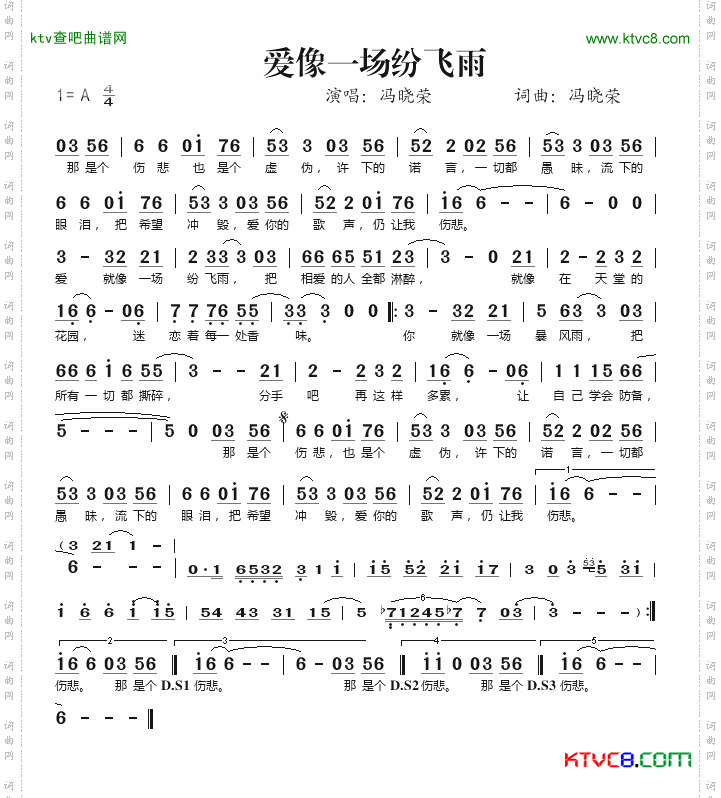 ktv查吧曲谱网
www.ktvc8.com
爱像一场纷飞雨
1=A 4/4 演唱：冯晓荣 词曲：冯晓荣
03 56 | 6 6 0i 76 | 53 3 03 56 | 52 2 02 56 | 53 3 03 56 |
那是个 伤悲 也是个 虚伪，许下的 诺言，一切都 愚昧，流下的
6 6 0i 76 | 53 3 03 56 | 52 2 0i 76 | i6 6 - - | 6 - 0 0 |
眼泪，把希望 冲毁，爱你的 歌声，仍让我 伤悲。
3 - 32 21 | 2 33 3 03 | 66 65 51 23 | 3 - - 21 | 2 - 2 3 2 |
爱 就像一场 纷飞雨，把 相爱的人全都淋醉， 就像 在天堂的
16 6 - 06 | 7 7 76 55 | 33 3 0 0 |: 3 - 32 21 | 5 63 3 03 |
花园，迷 恋着每一处香 味。 你 就像一场 暴风雨，把
66 6 i 6 55 | 3 - - 21 | 2 - 2 3 2 | 16 6 - 06 | 1 1 15 66 |
所有一切都撕碎， 分手 吧 再这样 多累，让 自己学会防备，
5 - - - | 5 0 03 56 | 6 6 0i 76 | 53 3 03 56 | 52 2 02 56 |
那是个 伤悲，也是个 虚伪，许下的 诺言，一切都
1
53 3 03 56 | 6 6 0i 76 | 53 3 03 56 | 52 2 0i 76 | i6 6 - - |
愚昧，流下的 眼泪，把希望 冲毁，爱你的 歌声，仍让我 伤悲。
(3 21 1 - |
6 - - | 0·1 6532 3 1 i | i5 52 21 i7 | 3 0 3 53 5 31 |
i 6 6 i i5 | 54 43 31 15 | 5 6 b71245b7 7 03 | 3 - - - ) :|
2 3 4 5
i6 6 03 56 || i6 6 - - | 6 - 03 56 || ii 0 03 56 || i6 6 - - |
伤悲。 那是个D.S1伤悲。 那是个D.S2伤悲。 那是个D.S3伤悲。
6 - - - ||
KTVC8.COM
词曲网